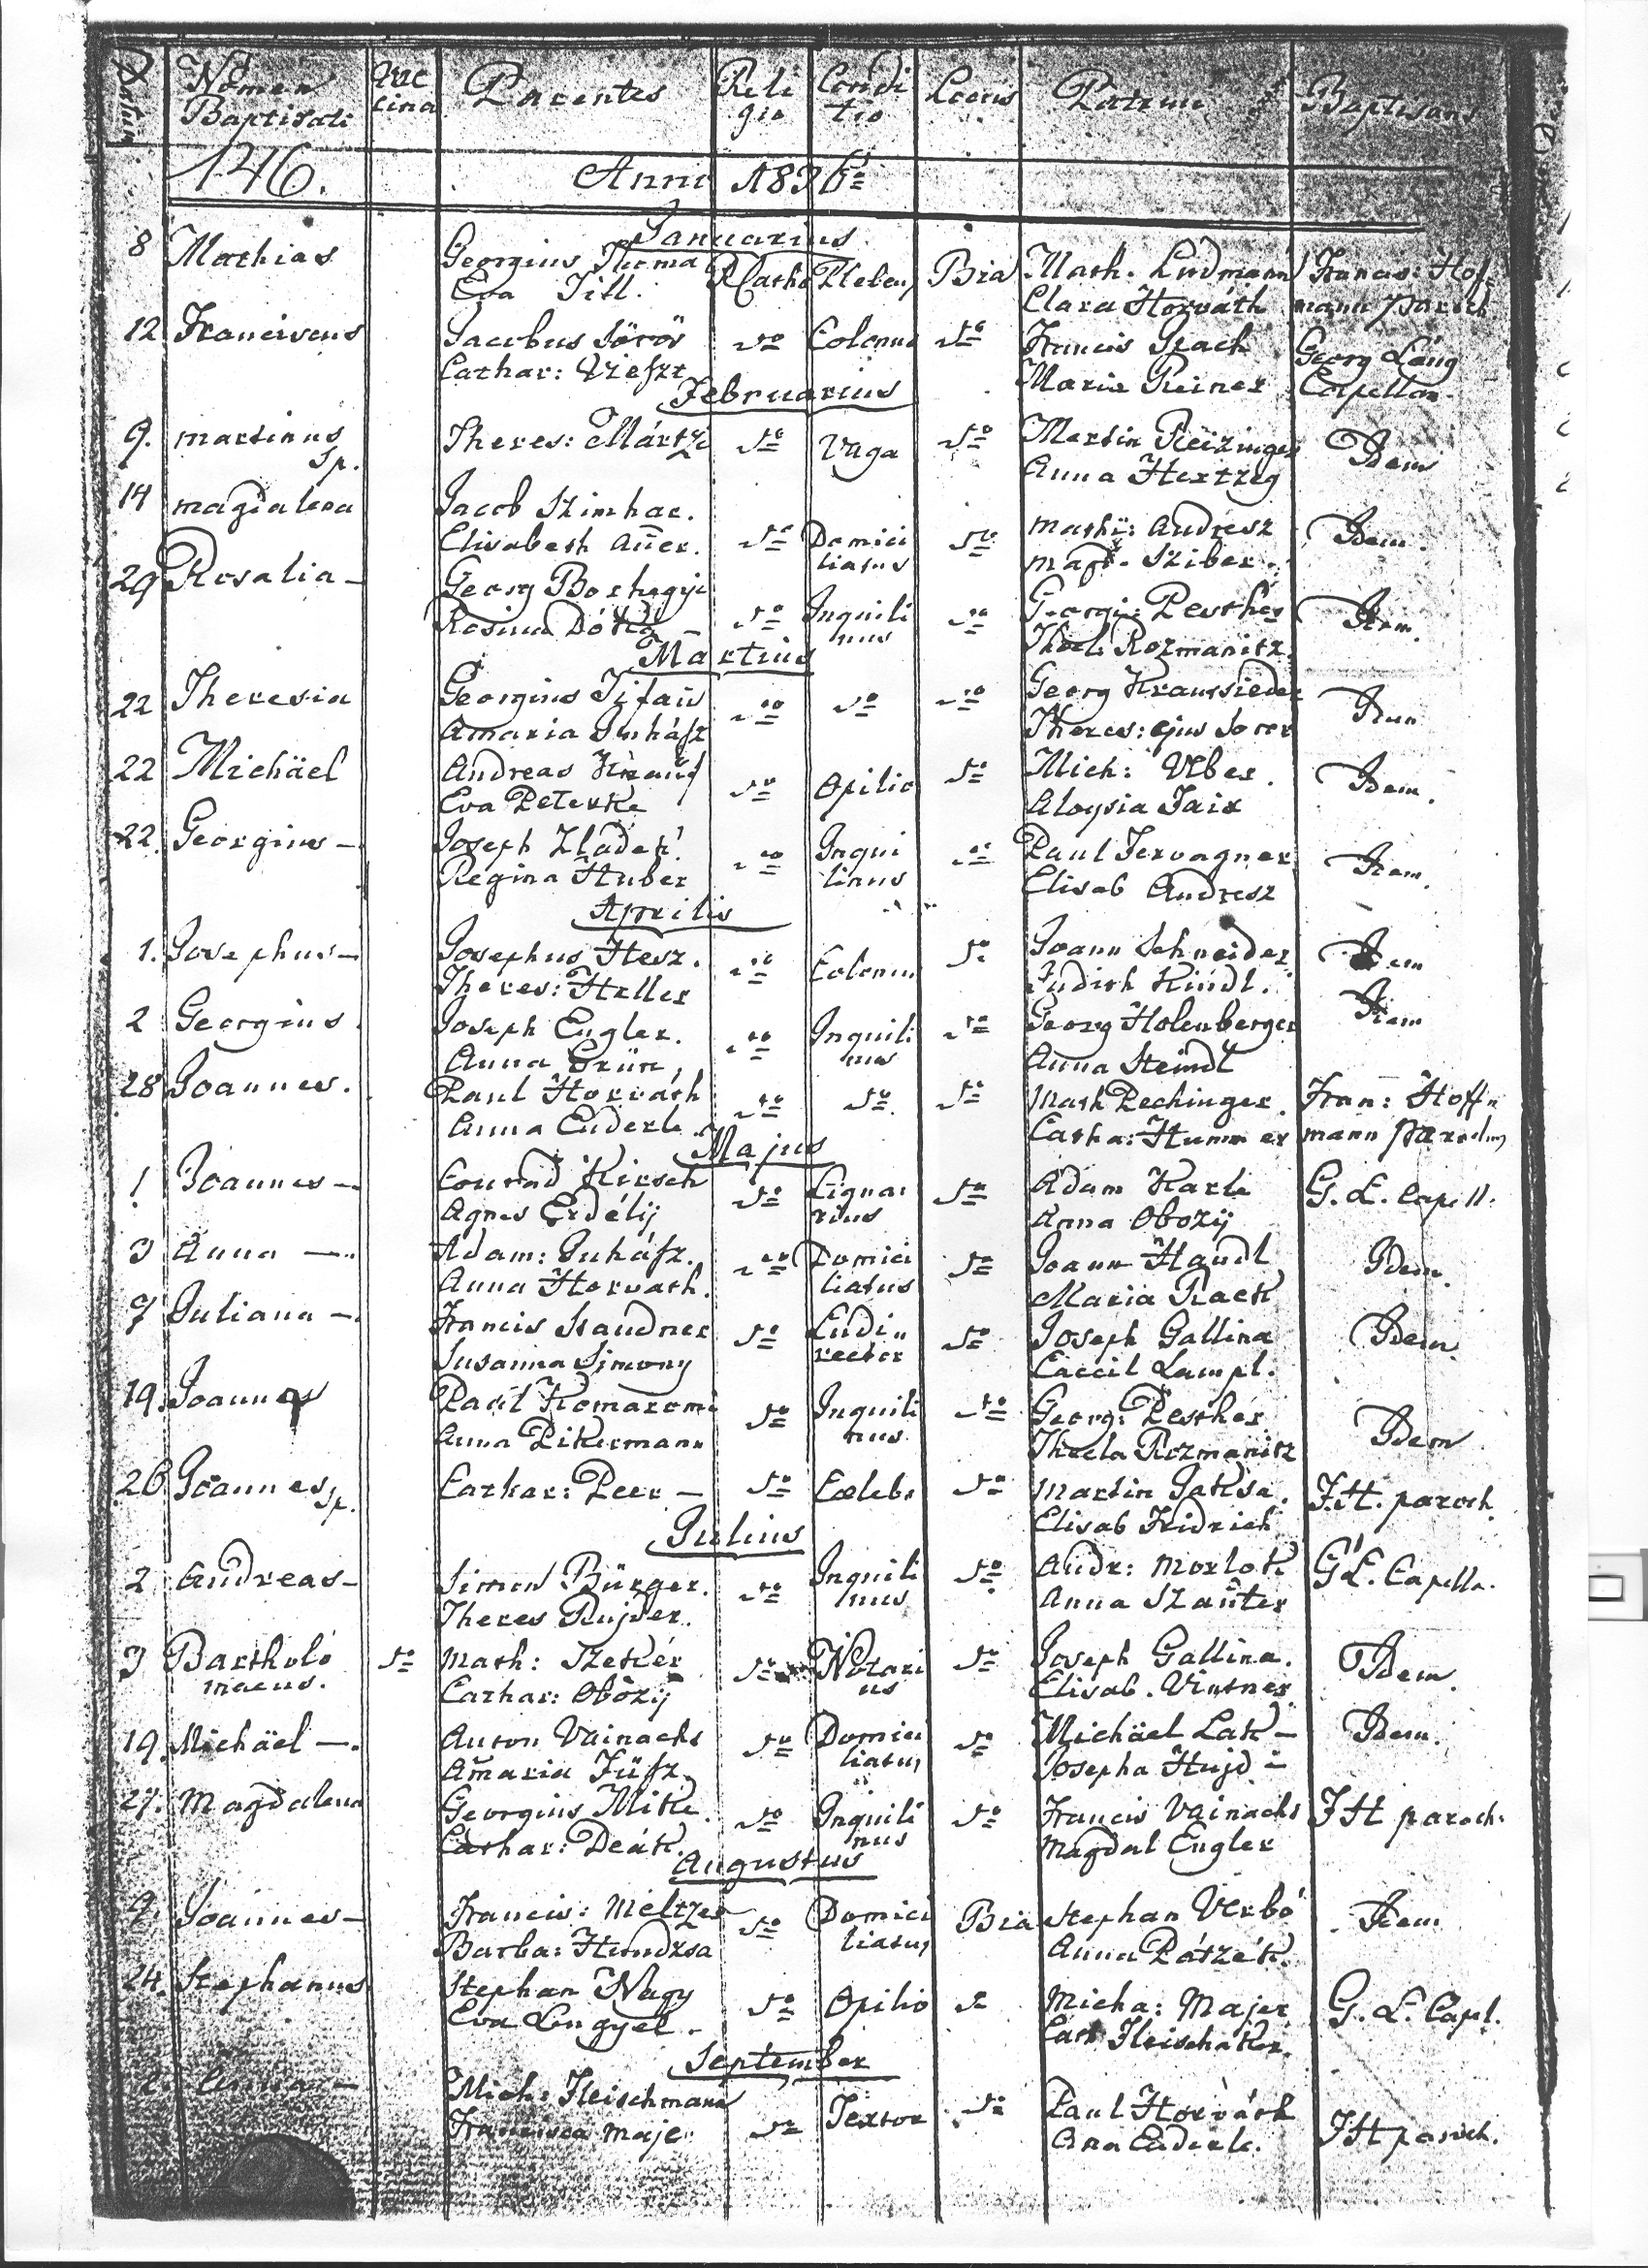 Datum Nomen Baptisati Vac cina Parentes Reli gio Condi tio Locus Patrini Baptisans
146. Anni 1836
Januarius
8 Mathias Georgius Eva Till. R Cath Plebeus Bia Math. Lindmann Clara Horváth Francis: Hof mann Paroch
12 Franciscus Jacobus Sörös Cathar: do Colonus do Francis Prach Maria Reiner Georg Láng Capellan.
Februarius
9. martinus Sp. Theres: Mártzi do Vaga do Martin Reizinger Anna Hertzeg Idem
14 magdalena Jacob Szimhac. Elisabeth Auer. do Domici liatus do Math: Andresz magd. Sziber. Idem.
29 Rosalia – Georg Rosina do Inquili nus do Georgi: Pesther Thecl. Rozmanitz. Idem.
Martius
22 Theresia Georgius Amaria Juhász do do do Georg Kraussieder Theres: ejus Soror Idem
22 Michäel Andreas Eva Peterke do Opilio do Mich: Alber. Aloysia Jaix Idem.
22. Georgius – Joseph Zladek. Regina Huber do Inqui linus do Paul Elisab Andresz Idem.
Aprilis
1. Josephus – Josephus Hesz. Theres: Heller do Colonus do Joann Schneider Judith Kindl. Idem
2 Georgius Joseph Engler. Anna Grün, do Inquili nus do Georg Holenberger Anna Steindl Idem
28 Joannes. Paul Horváth Anna Enderle do do. do Math Pechinger. Catha: Hummer Fran: Hoff mann Parochus
Majus
1 Joannes – Conrad Kirsch Agnes Erdélij do Ligna rius do Adam Karle Anna Obozij G. L. Capell.
3 Anna – Adam: Juhász. Anna Horvath. do Domici liatus do Joann Handl Maria Prack Idem.
7 Juliana –. Francis Standner Susanna Simony do Ludi rector do Joseph Gallina Caecil Lampl. Idem.
19. Joannes Paul Komaromi Anna Pikermann do Inquili nus do Georg: Pesther Thecla Rozmanitz Idem
26 Joannes Sp. Cathar: Peer – do Caelebs do Martin Jaksa. Elisab Fridrich F.H. paroch.
Julius
2 Andreas – Simon Bürger. Theres do Inquili nus do Andr: Morlok Anna Szauter G L. Capella.
3 Bartholo maeus. do Math: Szekér Cathar: Obozij do Notari us do Joseph Gallina. Elisab. Vintner Idem.
19. Michäel –. Anton Vainachs Amaria Füsz. do Domici liatus do Michäel Lak – Josepha Hujd Idem.
27. Magdalena Georgius Mike. Cathar: Deák. do Inquili nus do Francis Vainachs Magdal Engler F H paroch.
Augustus
9 Joannes – Francis: Meltzer Barba: Hundzsa do Domici liatus Bia Stephan Verbó Anna Pátzék. Idem
24. Stephanus Stephan Nagy Eva Lengyel. do Opilio do Micha: Majer Cath Fleischaker. G. L. Capl.
September
Mich: Fleischmann Francisca Maje do Textor do Paul Horváth Ana Enderle. F H paroch.